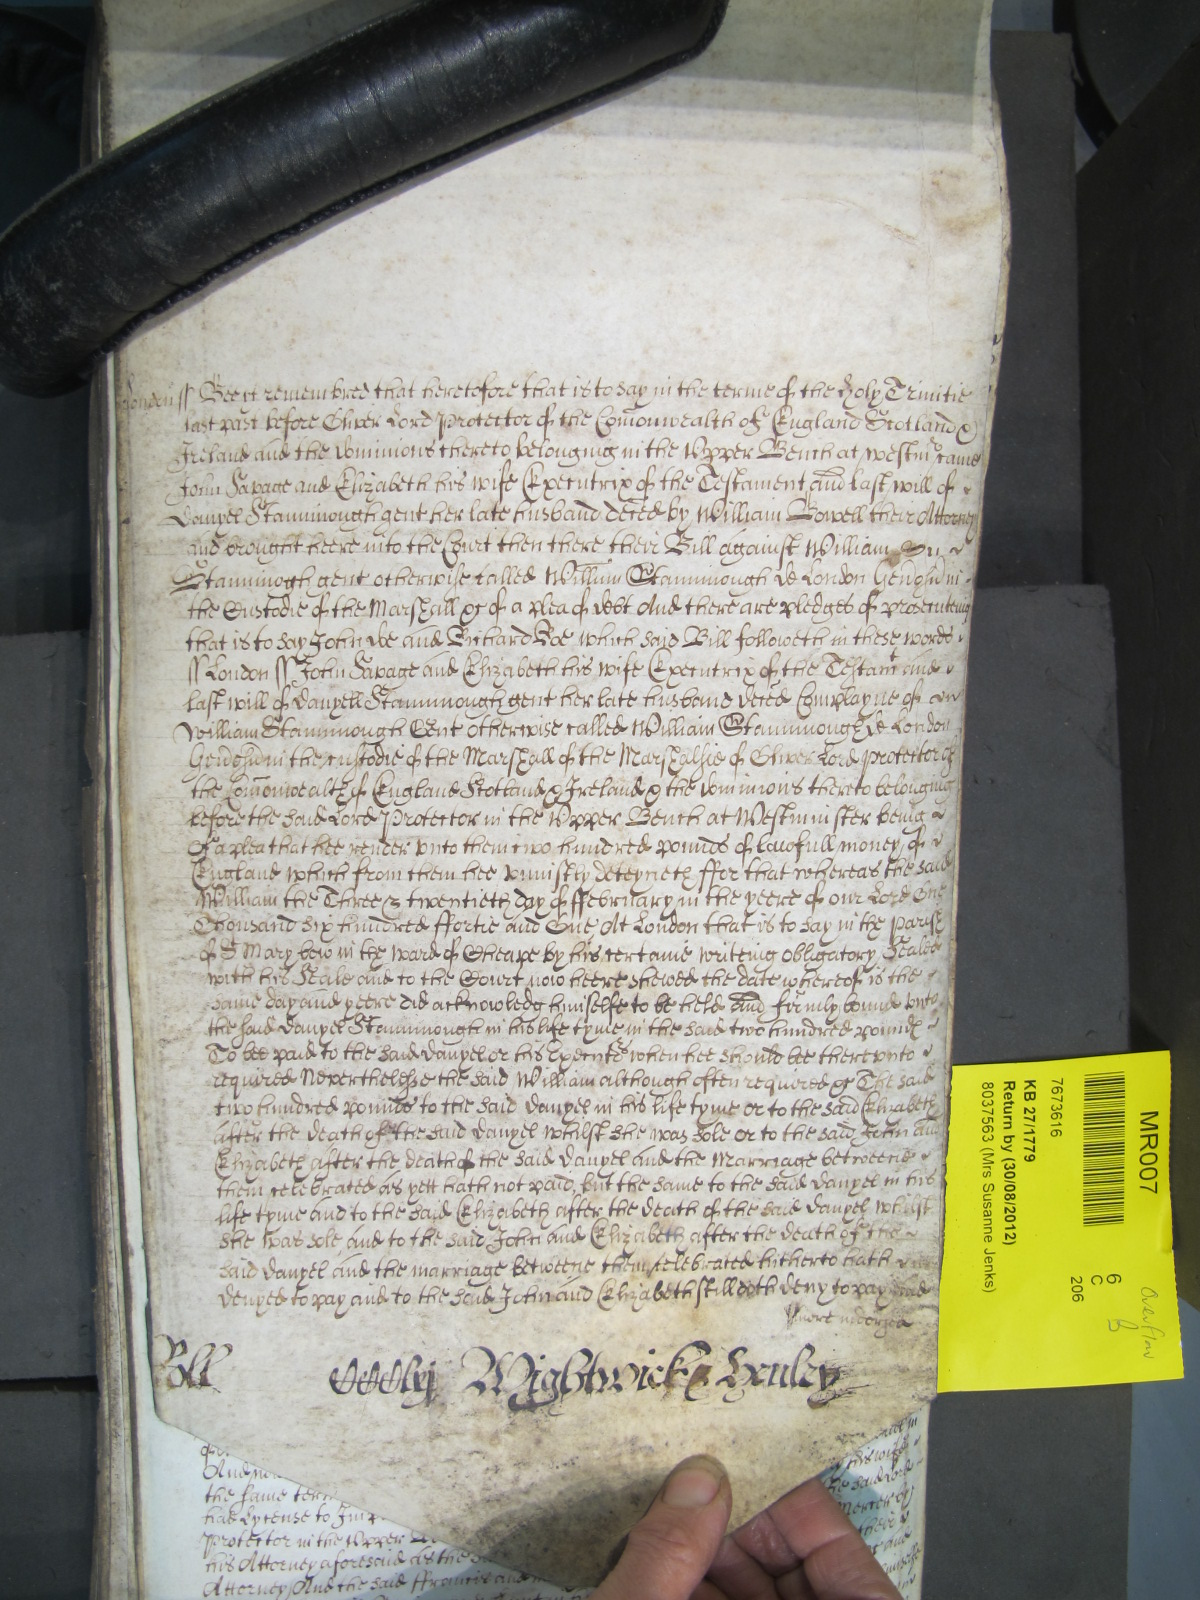 London ss Bee it remembred that heretofore that is to say in the terme of the holy Trinitie
last past before Oliver Lord Protector of the Comonwealth of England Scotland &
Ireland and the Dominions thereto belonging in the Upper Bench at Westm came
John Savage and Elizabeth his wife Executrix of the Testament and last will of
Danyel Stanninough gent her late husband deced by William Bowell their Attorney
and brought heere into the Court then there their Bill against William
Stanninogh gent otherwise called William Stanninough de London Gen in
the Custodie of the Marshall &c of a plea of debt And there are pledges of prosecuteing
that is to say John Doe and Richard Roe which said Bill followeth in these words
ss London ss John Savage and Elizabeth his wife Executrix of the Testamt and
last will of Danyell Stanninough gent her late husband deced Complayne of
William Stanninough Gent otherwise called William Stanninough de London
in the custodie of the Marshall of the Marshalsie of Oliver Lord protector of
the Comonwealth of England Scotland & Ireland & the Dominions thereto belonging
before the said Lord Protector in the Upper Bench at Westminster being
Of a plea that hee render unto them two hundred pounds of lawfull money of
England which from them hee uniustly deteyneth ffor that whereas the said
William the Three & twentieth day of ffebruary in the yeere of our Lord One
Thousand six hundred ffortie and One At London that is to say in the parish
of S Mary bow in the ward of Cheape by his certaine writeing obligatory Sealed
with his Seale and to the Court now heere shewed the date whereof is the
same day and yeere did acknowledg himselfe to be held and firmly bound unto
the said Danyel Stanninough in his life tyme in the said two hundred pounds
To bee paid to the said Danyel or his Execut when hee should bee thereunto
required Neverthelesse the said William although often required &c The said
two hundred pounds to the said Danyel in his life tyme or to the said Elizabeth
after the death of the said Danyel whilst she was sole or to the said John and
Elizabeth after the death of the said Danyel and the Marriage betweene
them celebrated as yett hath not paid, but the same to the said Danyel in his
life tyme and to the said Elizabeth after the death of the said Danyel whilst
she was sole and to the said John and Elizabeth after the death of the
said Danyel and the marriage betweene them celebrated hitherto hath
denyed to pay and to the said John and Elizabeth still doth deny to pay And
Roll Wightwick & Henley
And now
the same term
had lycense to Imp
Protector in the Upper
his Attorney aforesaid as the
Attorney And the said ffrancis and
MR007
6
C
206
Overflow
B
7673616
KB 27/1779
Return by (30/08/2012)
8037563 (Mrs Susanne Jenks)